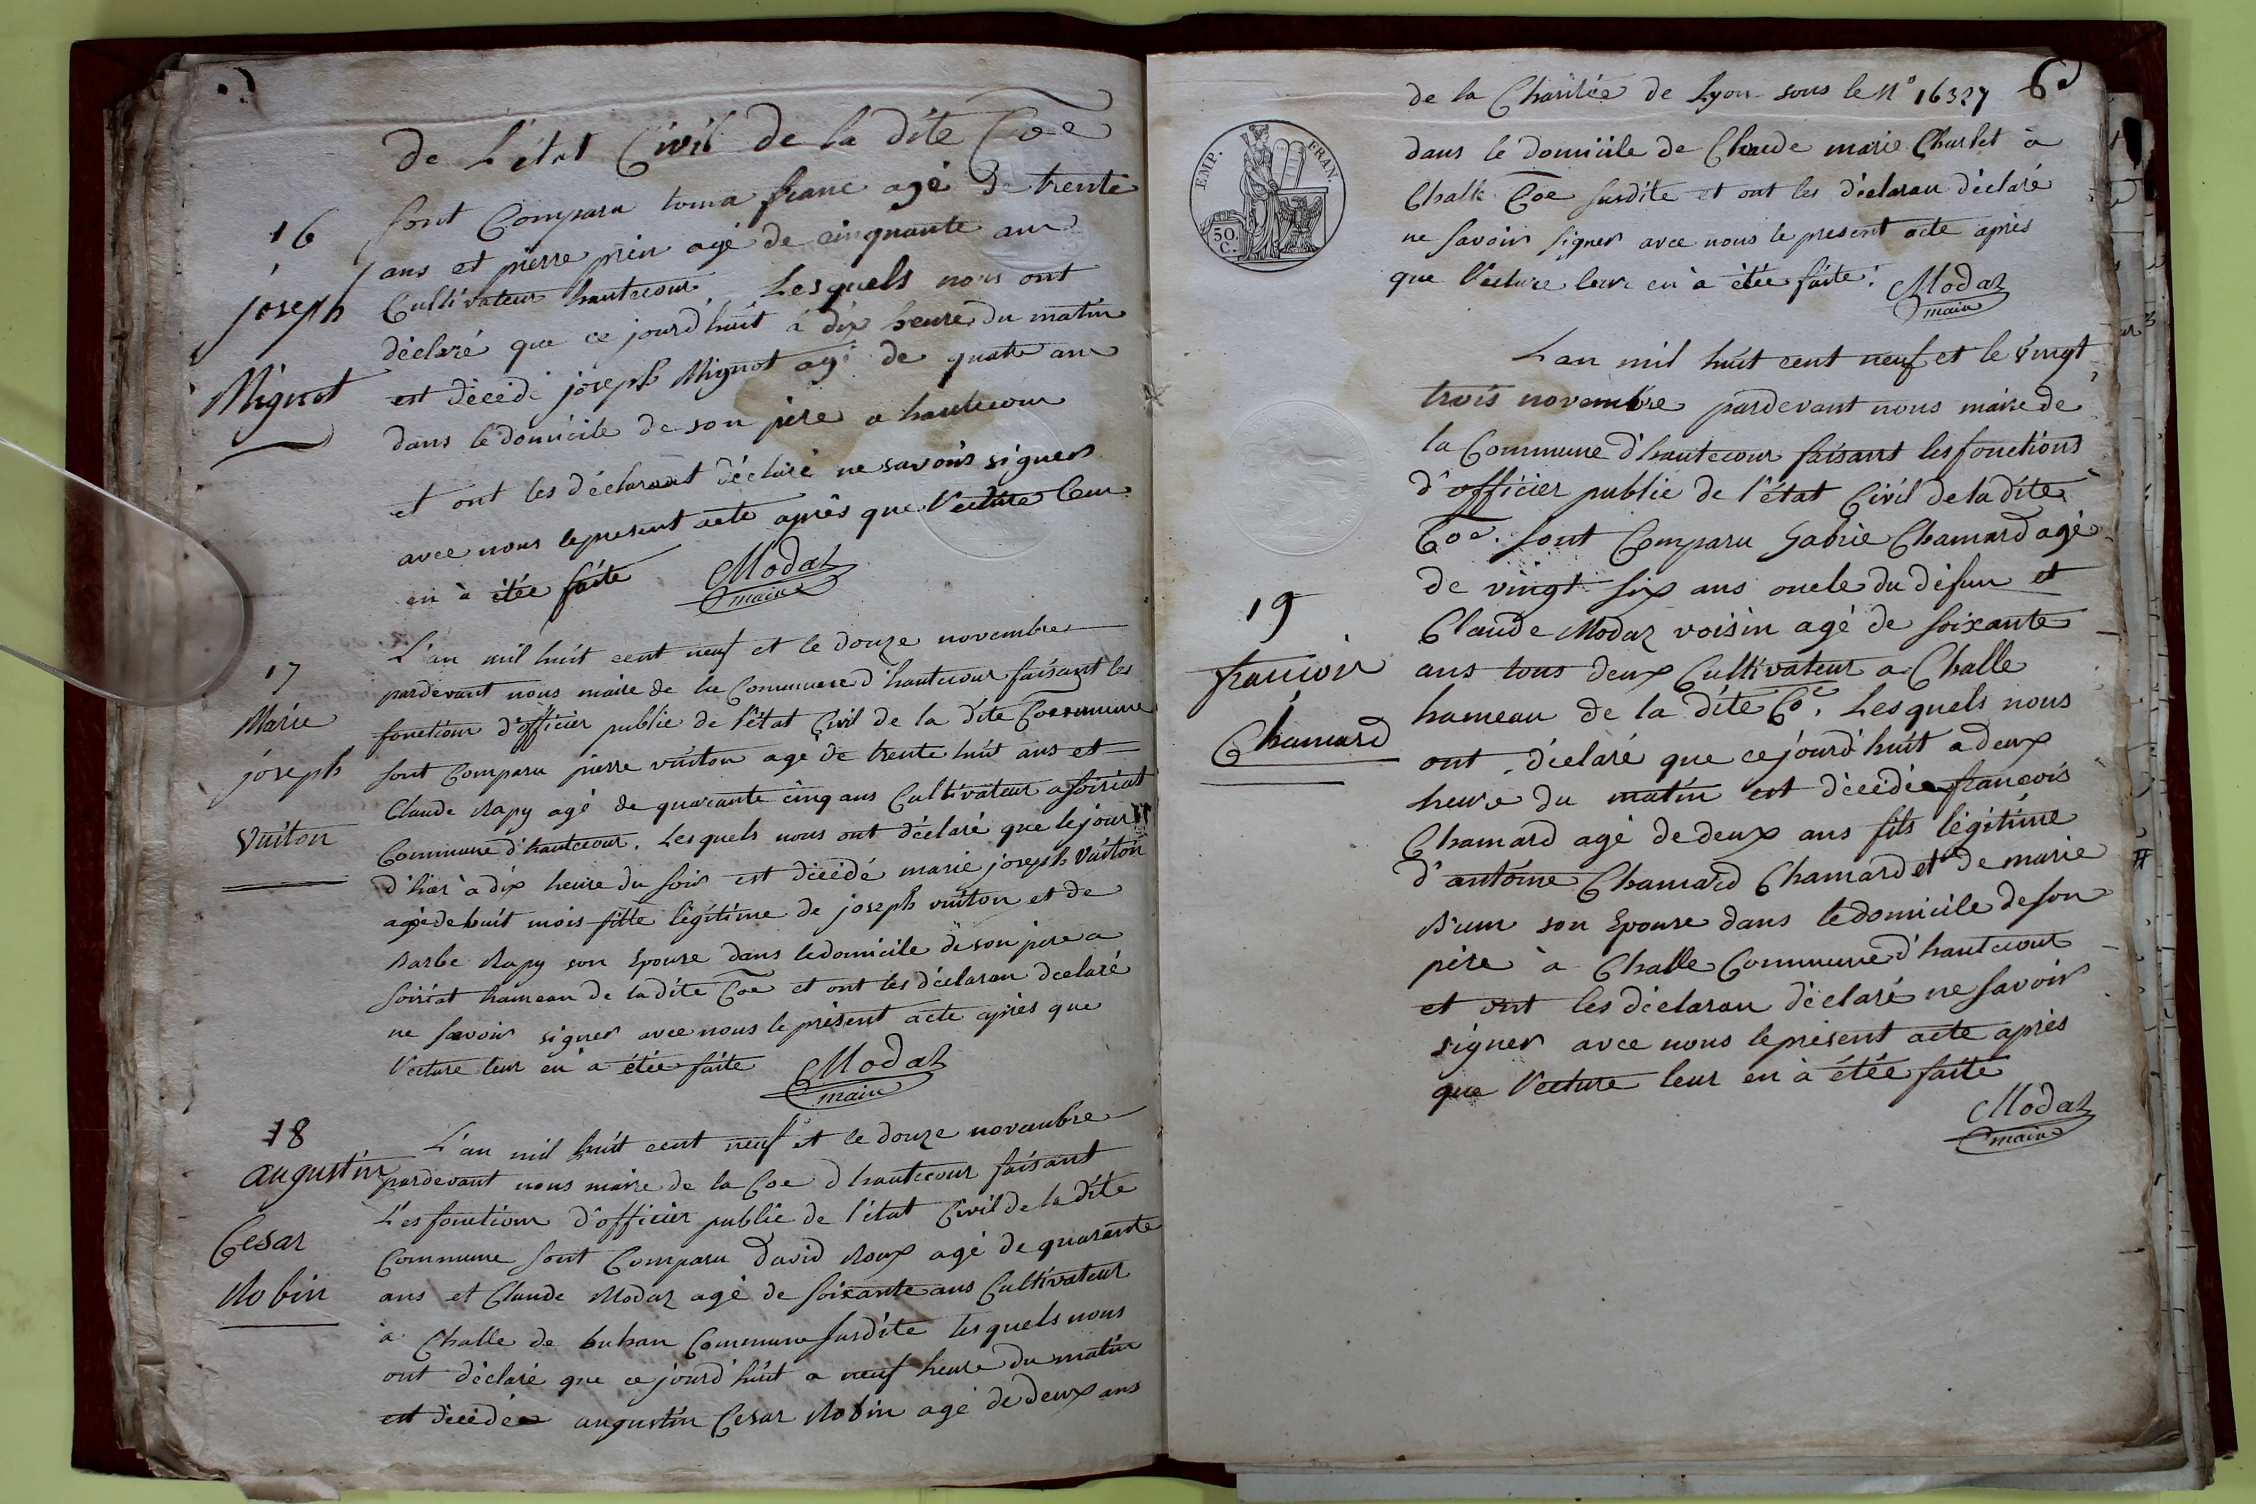 de L'état Civil de la dite Coe
16
sont Comparu toma franc agé de trente
ans et pierre prin agé de cinquante ans
joseph
Cultivateur hautecour Lesquels nous ont
déclaré que ce jourd'huit à dix heure du matin
Mignot
est décédé joseph Mignot agé de quatre ans
dans le domicile de son pere a hautecour
et ont les déclarant déclaré ne savoir signer
avec nous le present acte après que l'ecture leur
en à étée faite
Modaz
maire
L'an mil huit cent neuf et le douze novembre
17
pardevant nous maire de la Commune d'hautecour faisant les
Marie
fonctions d'officier public de l'état Civil de la dite Commune
joseph
sont Comparu pierre vuiton agé de trente huit ans et
Claude Rapy agé de quarante cinq ans Cultivateur a soiriat
Vuiton
Commune d'hautecour. Lesquels nous ont déclaré que le jour
d'hier à dix heure du soir est décédé marie joseph Vuiton
agé de huit mois fille légitime de joseph vuiton et de
Barbe Rapy son Epouse dans le domicile de son pere a
soiriat hameau de la dite Coe et ont les déclaran declaré
ne savoir signer avec nous le présent acte après que
l'ecture leur en à étée faite
Modaz
maire
18
L'an mil huit cent neuf et le douze novembre
augustin
pardevant nous maire de la Coe d hautecour faisant
Les fonctions d'officier public de l'état Civil de la dite
Cesar
Commune sont Comparu David Roux agé de quarante
Robin
ans et Claude Modaz agé de soixante ans Cultivateur
à Challe de buhan Commune susdite lesquels nous
ont déclaré que ce jourd'huit a neuf heure du matin
est décédée augustin Cesar Robin agé de deux ans
de la Charitée de Lyon sous le N° 16327
6
dans le domicile de Claude marie Charlet à
Challe Coe susdite et ont les déclaran déclaré
ne savoir signer avec nous le present acte après
que l'ecture leur en à étée faite.
Modaz
maire
EMP. FRAN.
50.
C.
L'an mil huit cent neuf et le vingt
trois novembre pardevant nous maire de
la Commune d'hautecour faisant les fonctions
d'officier public de l'état Civil de la dite
Coe. sont Comparu Gabrie Chamard agé
de vingt six ans oncle du défun et
19
Claude Modaz voisin agé de soixante
francois
ans tous deux Cultivateur a Challe
hameau de la dite Coe. Lesquels nous
Chamard
ont déclaré que ce jourd'huit a deux
heure du matin est décédée francois
Chamard agé de deux ans fils légitime
d'antoine Chamard Chamard et de marie
son Epouse dans le domicile de son
père à Challe Commune d'hautecour
et ont les déclaran déclaré ne savoir
signer avec nous le présent acte après
que l'ecture leur en à étée faite
Modaz
maire